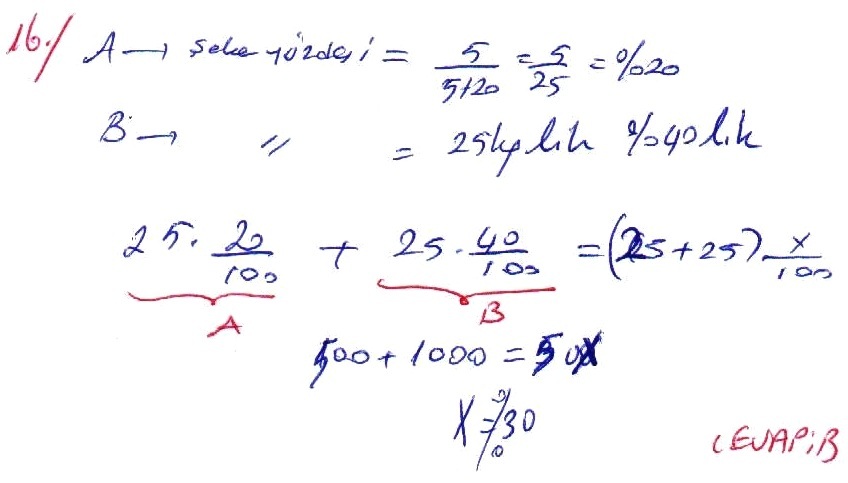 16./ A → şeker yüzdesi = 5/(5+20) = 5/25 = %20
B → " = 25kg lık %40 lık
25 . 20/100 + 25 . 40/100 = (25+25) x/100
A B
500 + 1000 = 50X
X = %30
CEVAP: B